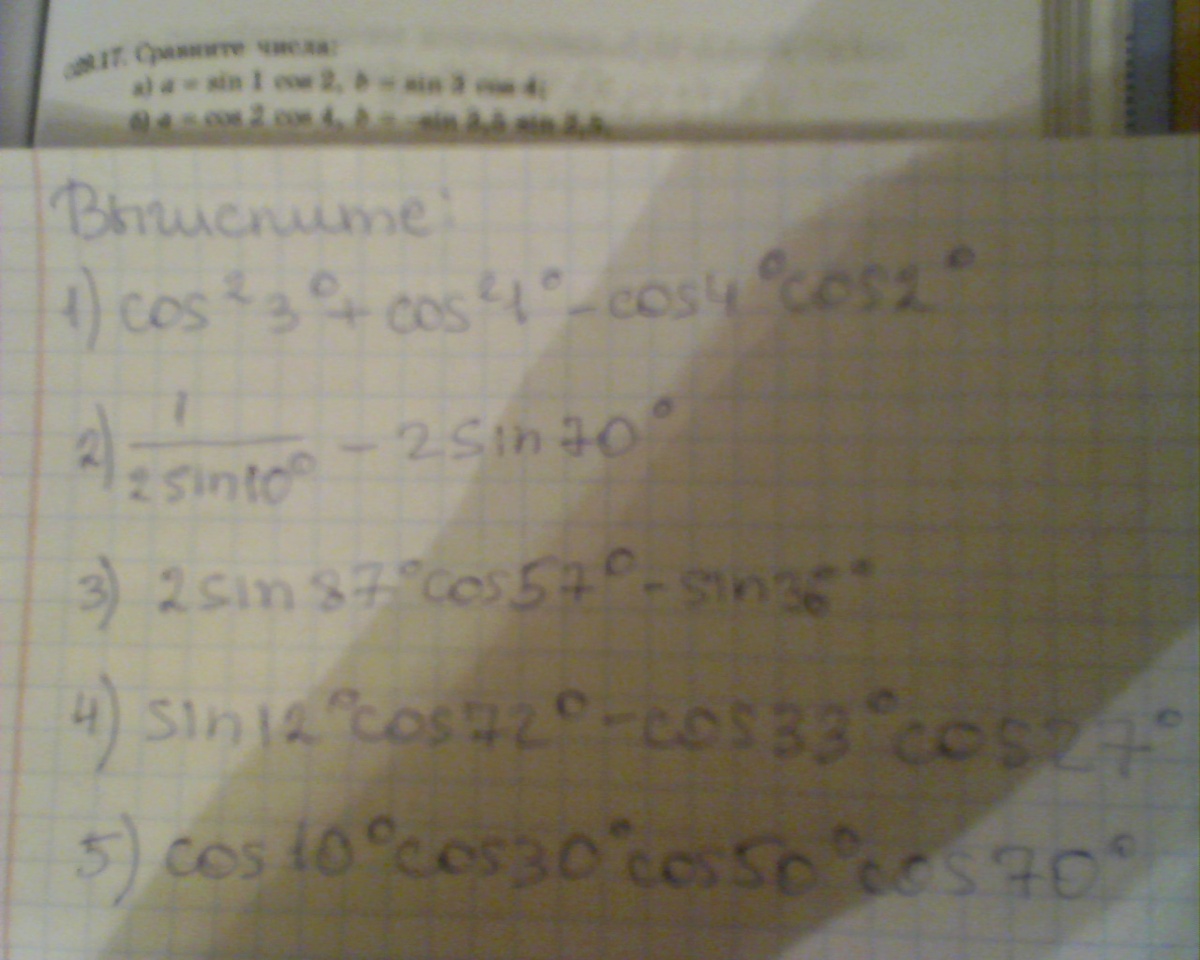 29.17. Сравните числа:
а) a = sin 1 cos 2, b = sin 3 cos 4;
б) a = cos 2 cos 4, b =
Вычислите:
1) cos²3° + cos²1° - cos4°cos2°
2) 1/(2sin10°) - 2sin70°
3) 2sin87°cos57° - sin36°
4) sin12°cos72° - cos33°cos27°
5) cos10°cos30°cos50°cos70°